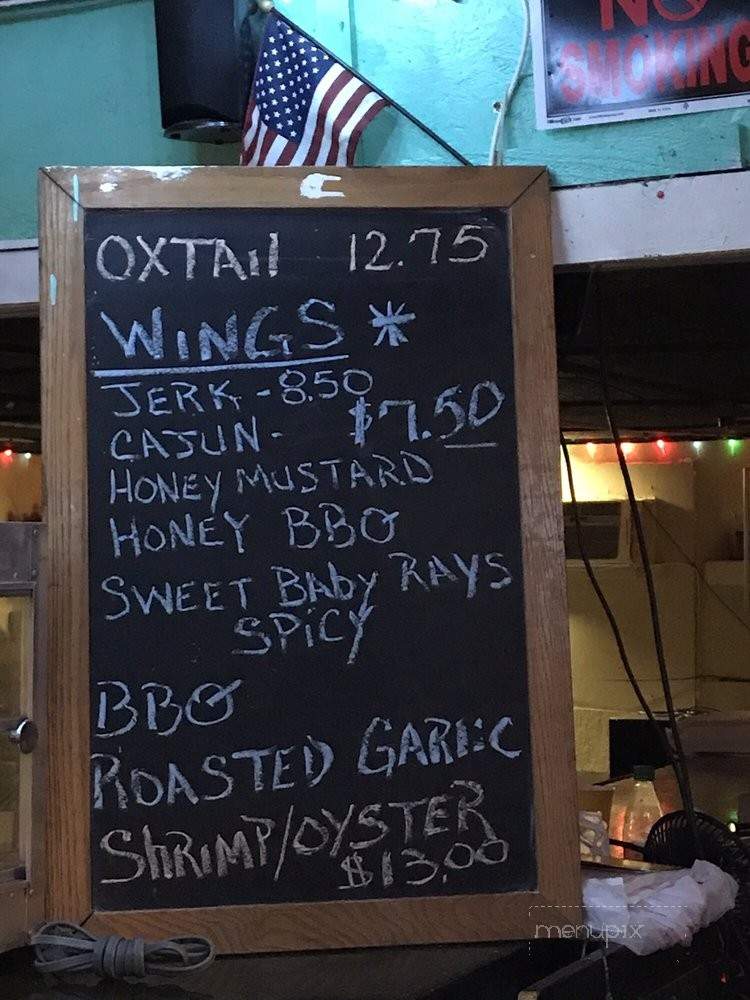 NO
SMOKING
OXTAil 12.75
WINGS *
JERK - 8.50
CAJUN - $7.50
HONEY MUSTARD
HONEY BBQ
SWEET BAby RAYS
SPiCY
BBQ
ROASTED GARLIC
ShRIMP/OYSTER
$13.00
menupix